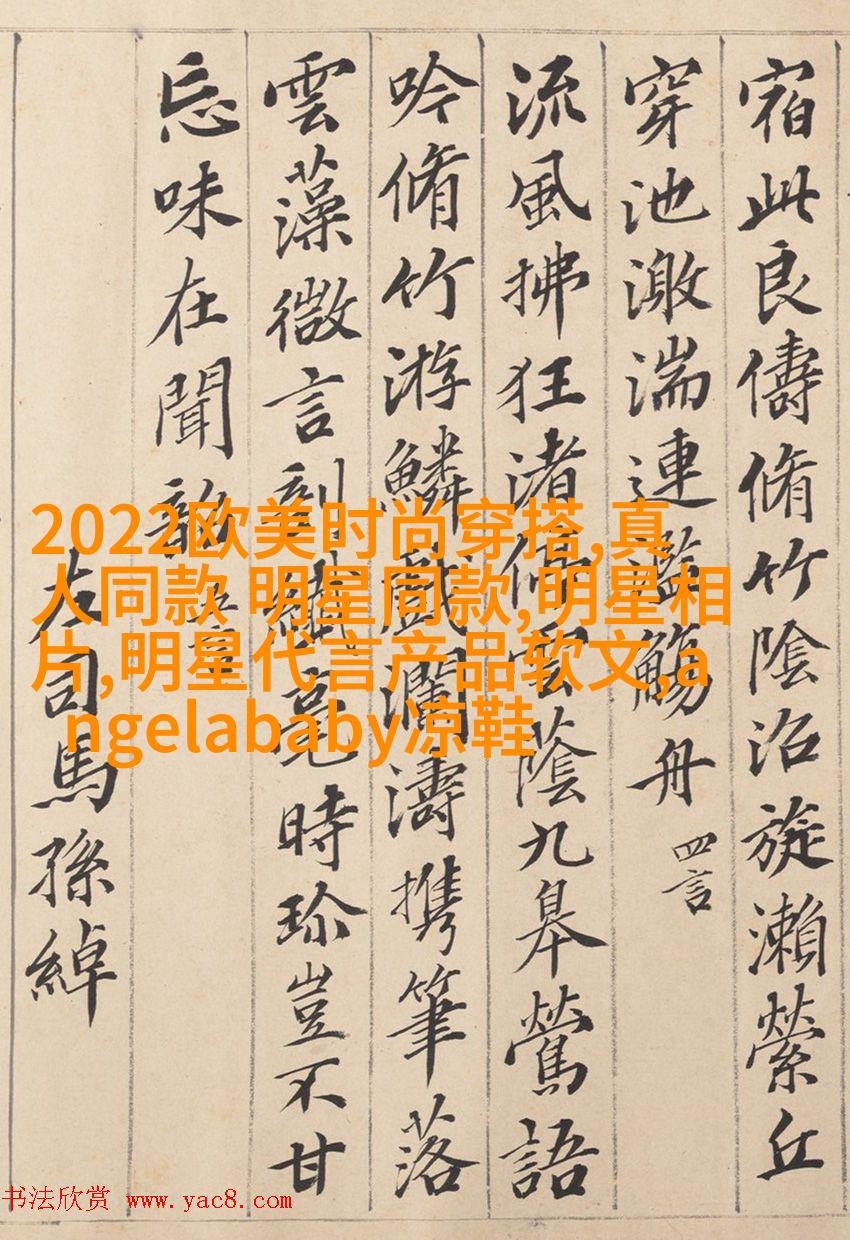 宿此良儔脩竹陰沼旋瀨縈丘
穿池激湍連濫觴舟 四言
流風拂狂渚停雲蔭九皋鶯語
吟脩竹游鱗戲瀾濤携筆落
雲藻微言剖纖毫時珍豈不甘
忘味在聞韶 五言
右司馬孫綽
2022欧美时尚穿搭,真
人同款 明星同款,明星相
片,明星代言产品软文,a
ngelababy凉鞋
书法欣赏 www.yac8.com